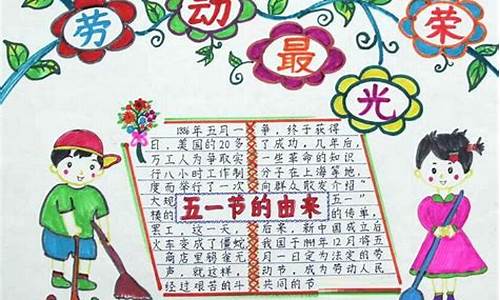 劳动最光荣
1886年五月一
日，美国的20多
万工人为争取实
行八小时工作制
度而举行了一次
大
模的
罢工，这一天
火车变成了僵蛇
商店里鸦雀无
声，就这样，
经过艰苦的斗
五一节的由来
争，终于获得
了成功，几年后，
一些革命的知识
分子在上海等地，
向群众散发介绍
五一”
的传单，
后来，新中国成立后
我国于1949年12月将五
月一日定为法定的劳
动节，成为劳动人民
共同的节